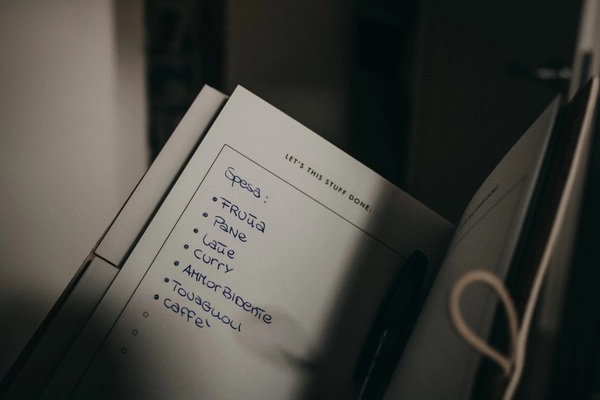 LET'S THIS STUFF DONE:
Spesa:
• FRUTTA
• PANE
• LATTE
• CURRY
• AMMORBIDENTE
• TOVAGLIOLI
• CAFFE'